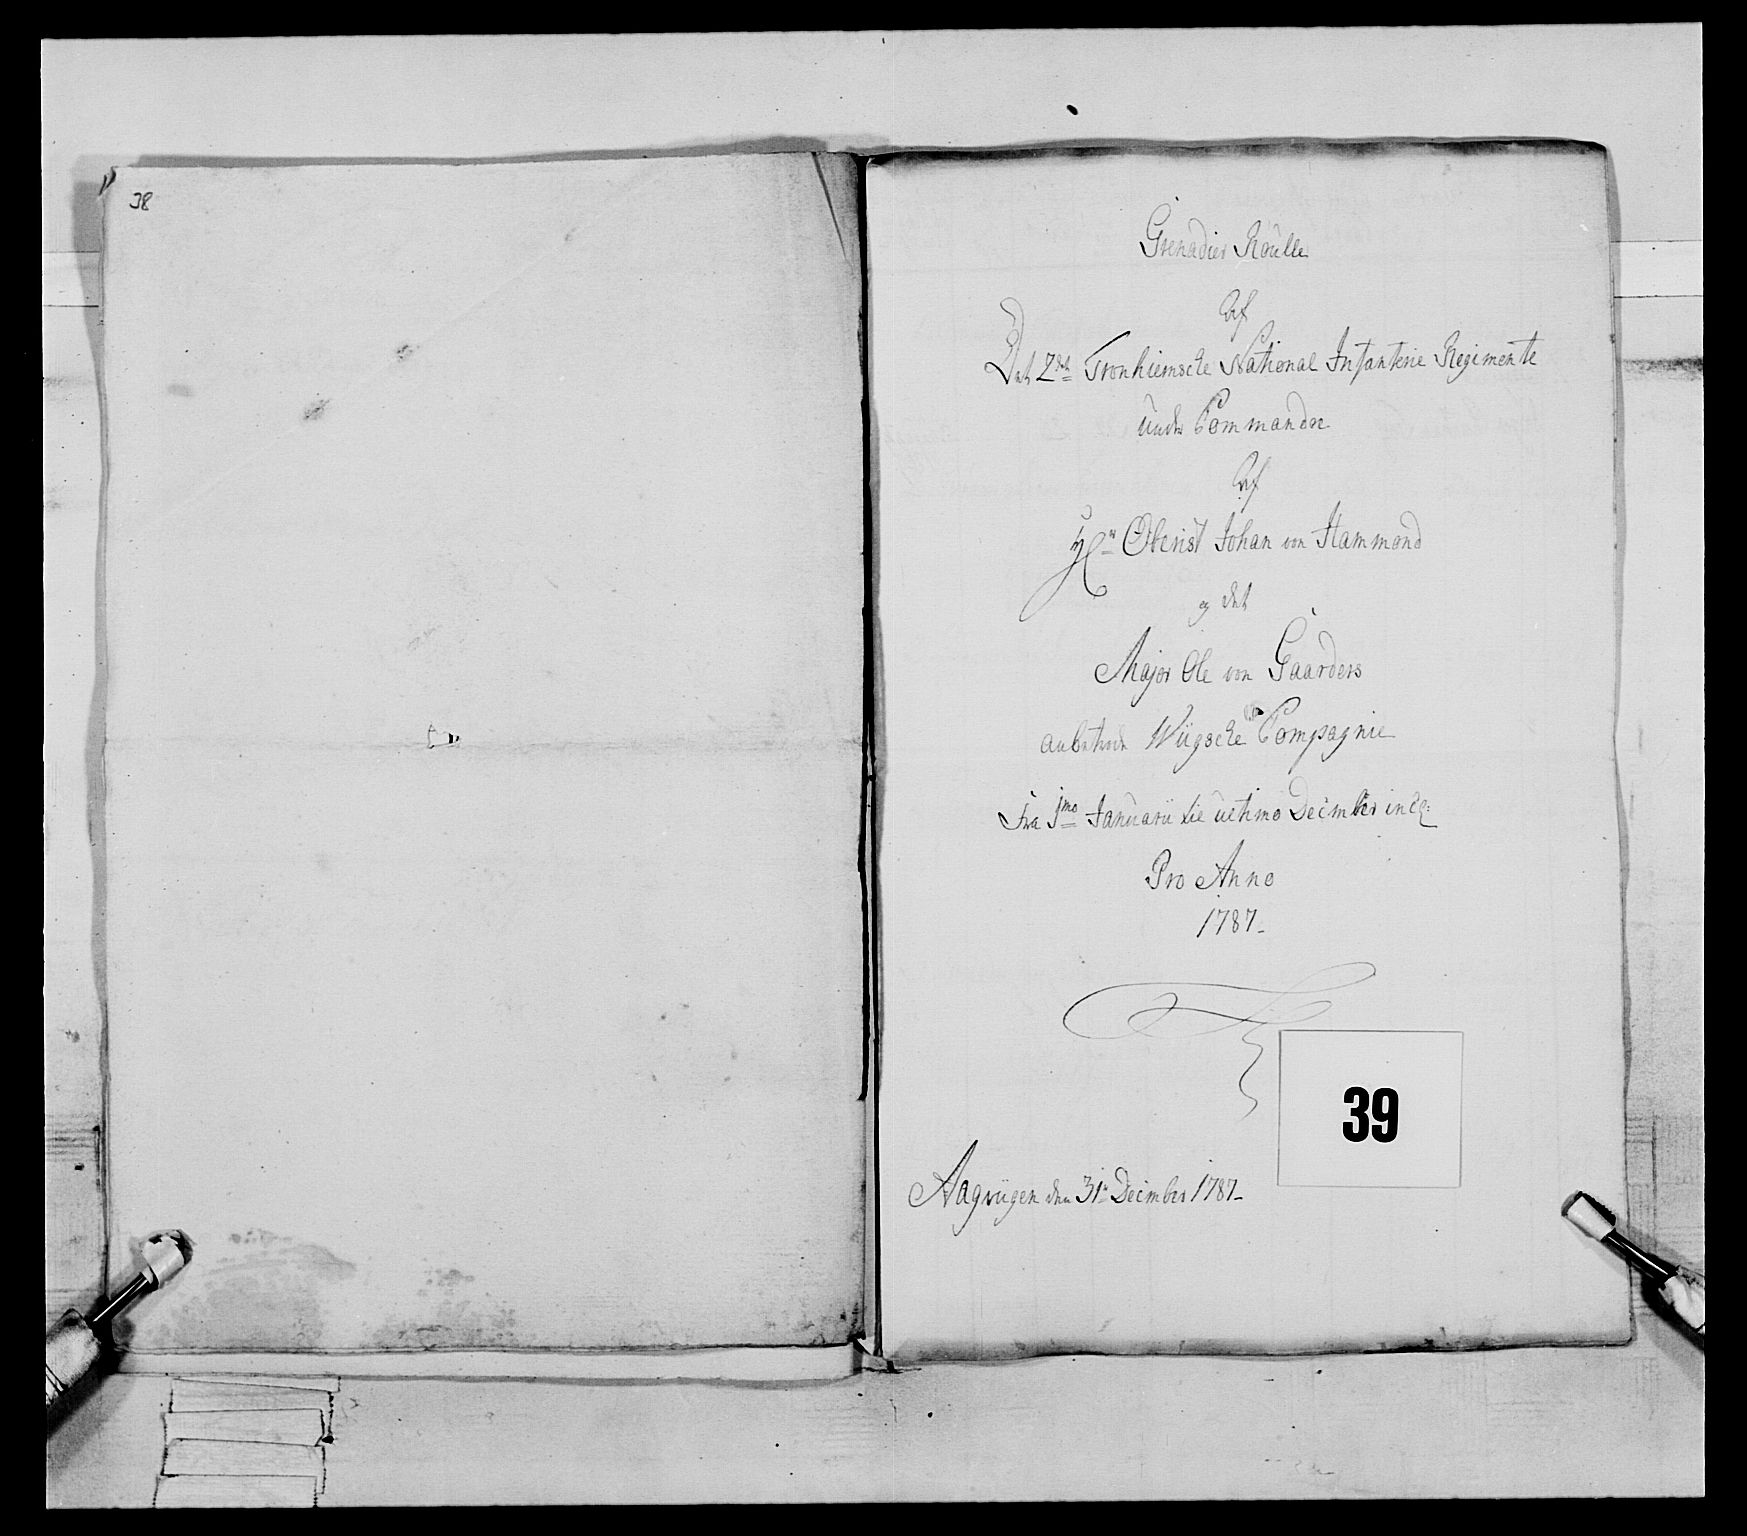 38
Grenadier Roulle
Af
Det 2det Tronhiemsche National Infanterie Regimente
under Commando
Af
Hr Oberist Johan von Hammond
og det
Major Ole von Gaarders
anbetroede Wiigsche Compagnie
Fra 1mo Januarii til ultimo December incl:
Pro Anno
1787-
39
den 31te December 1787-